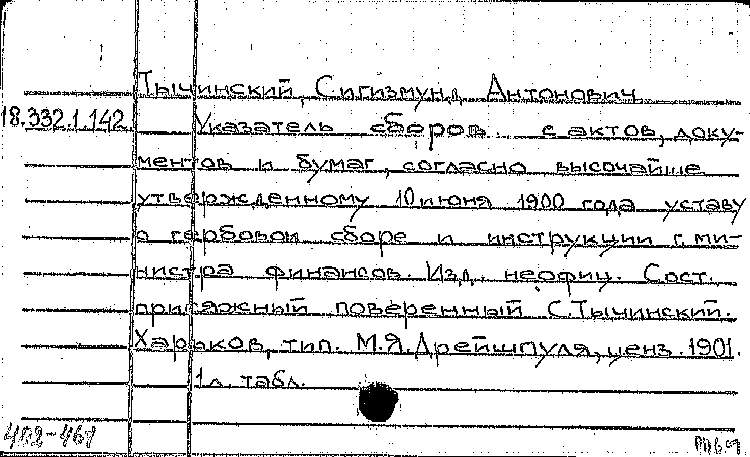 Тычинский, Сигизмунд Антонович
18.332.1.142. Указатель сборов с актов, доку-
ментов и бумаг, согласно высочайше
утвержденному 10 июня 1900 года уставу
о гербовом сборе и инструкции г. ми-
нистра финансов. Изд. неофиц. Сост.
присяжный поверенный С. Тычинский.
Харьков, тип. М.Я. Дрейшпуля, ценз. 1901.
1 л. табл.